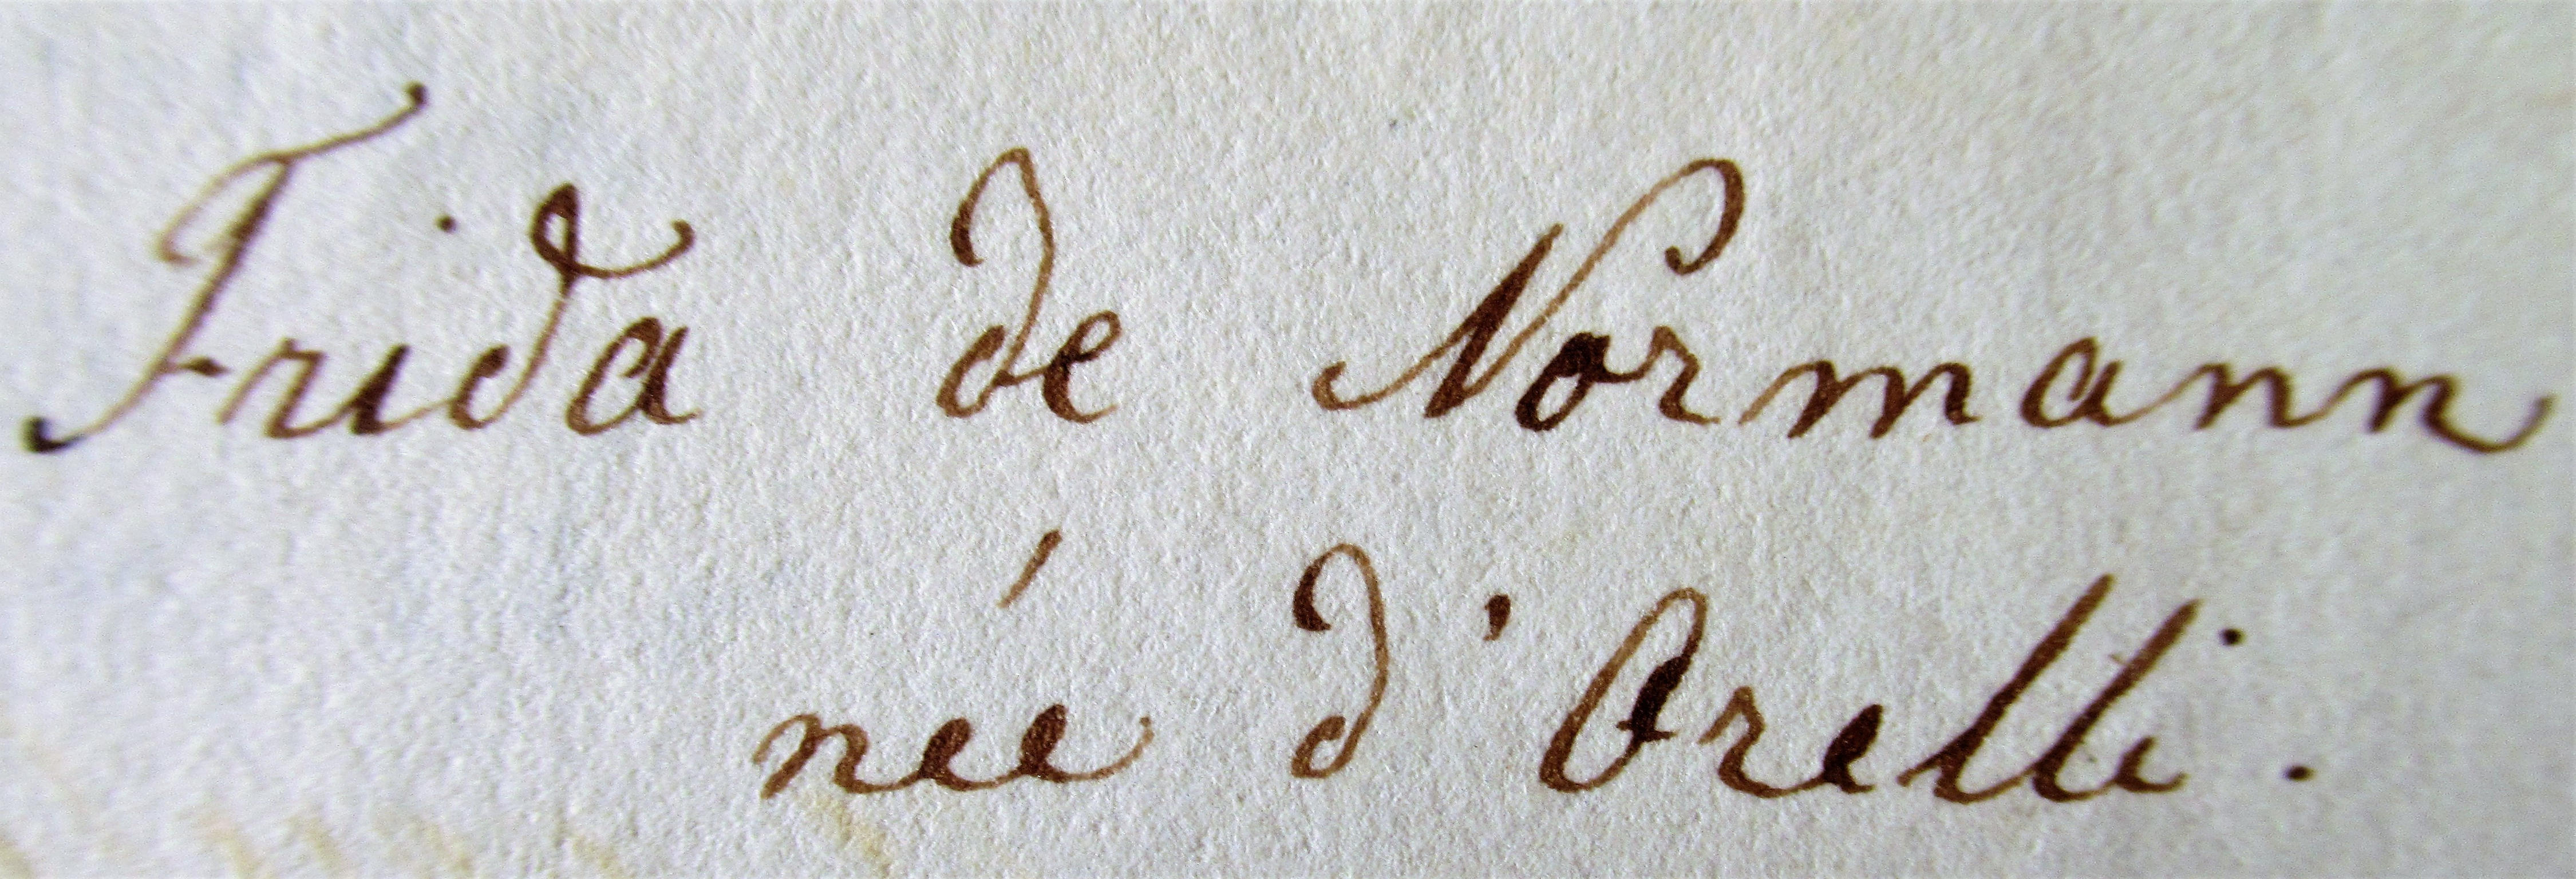 Frida de Normann
née d'Orelli.